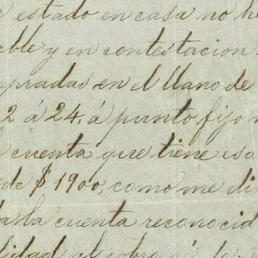 estado en casa no he
ble y en contestacion
pradas en el llano de
2 á 24, á punto fijo
cuenta que tiene esa
de $1900, como me di
la cuenta reconocid